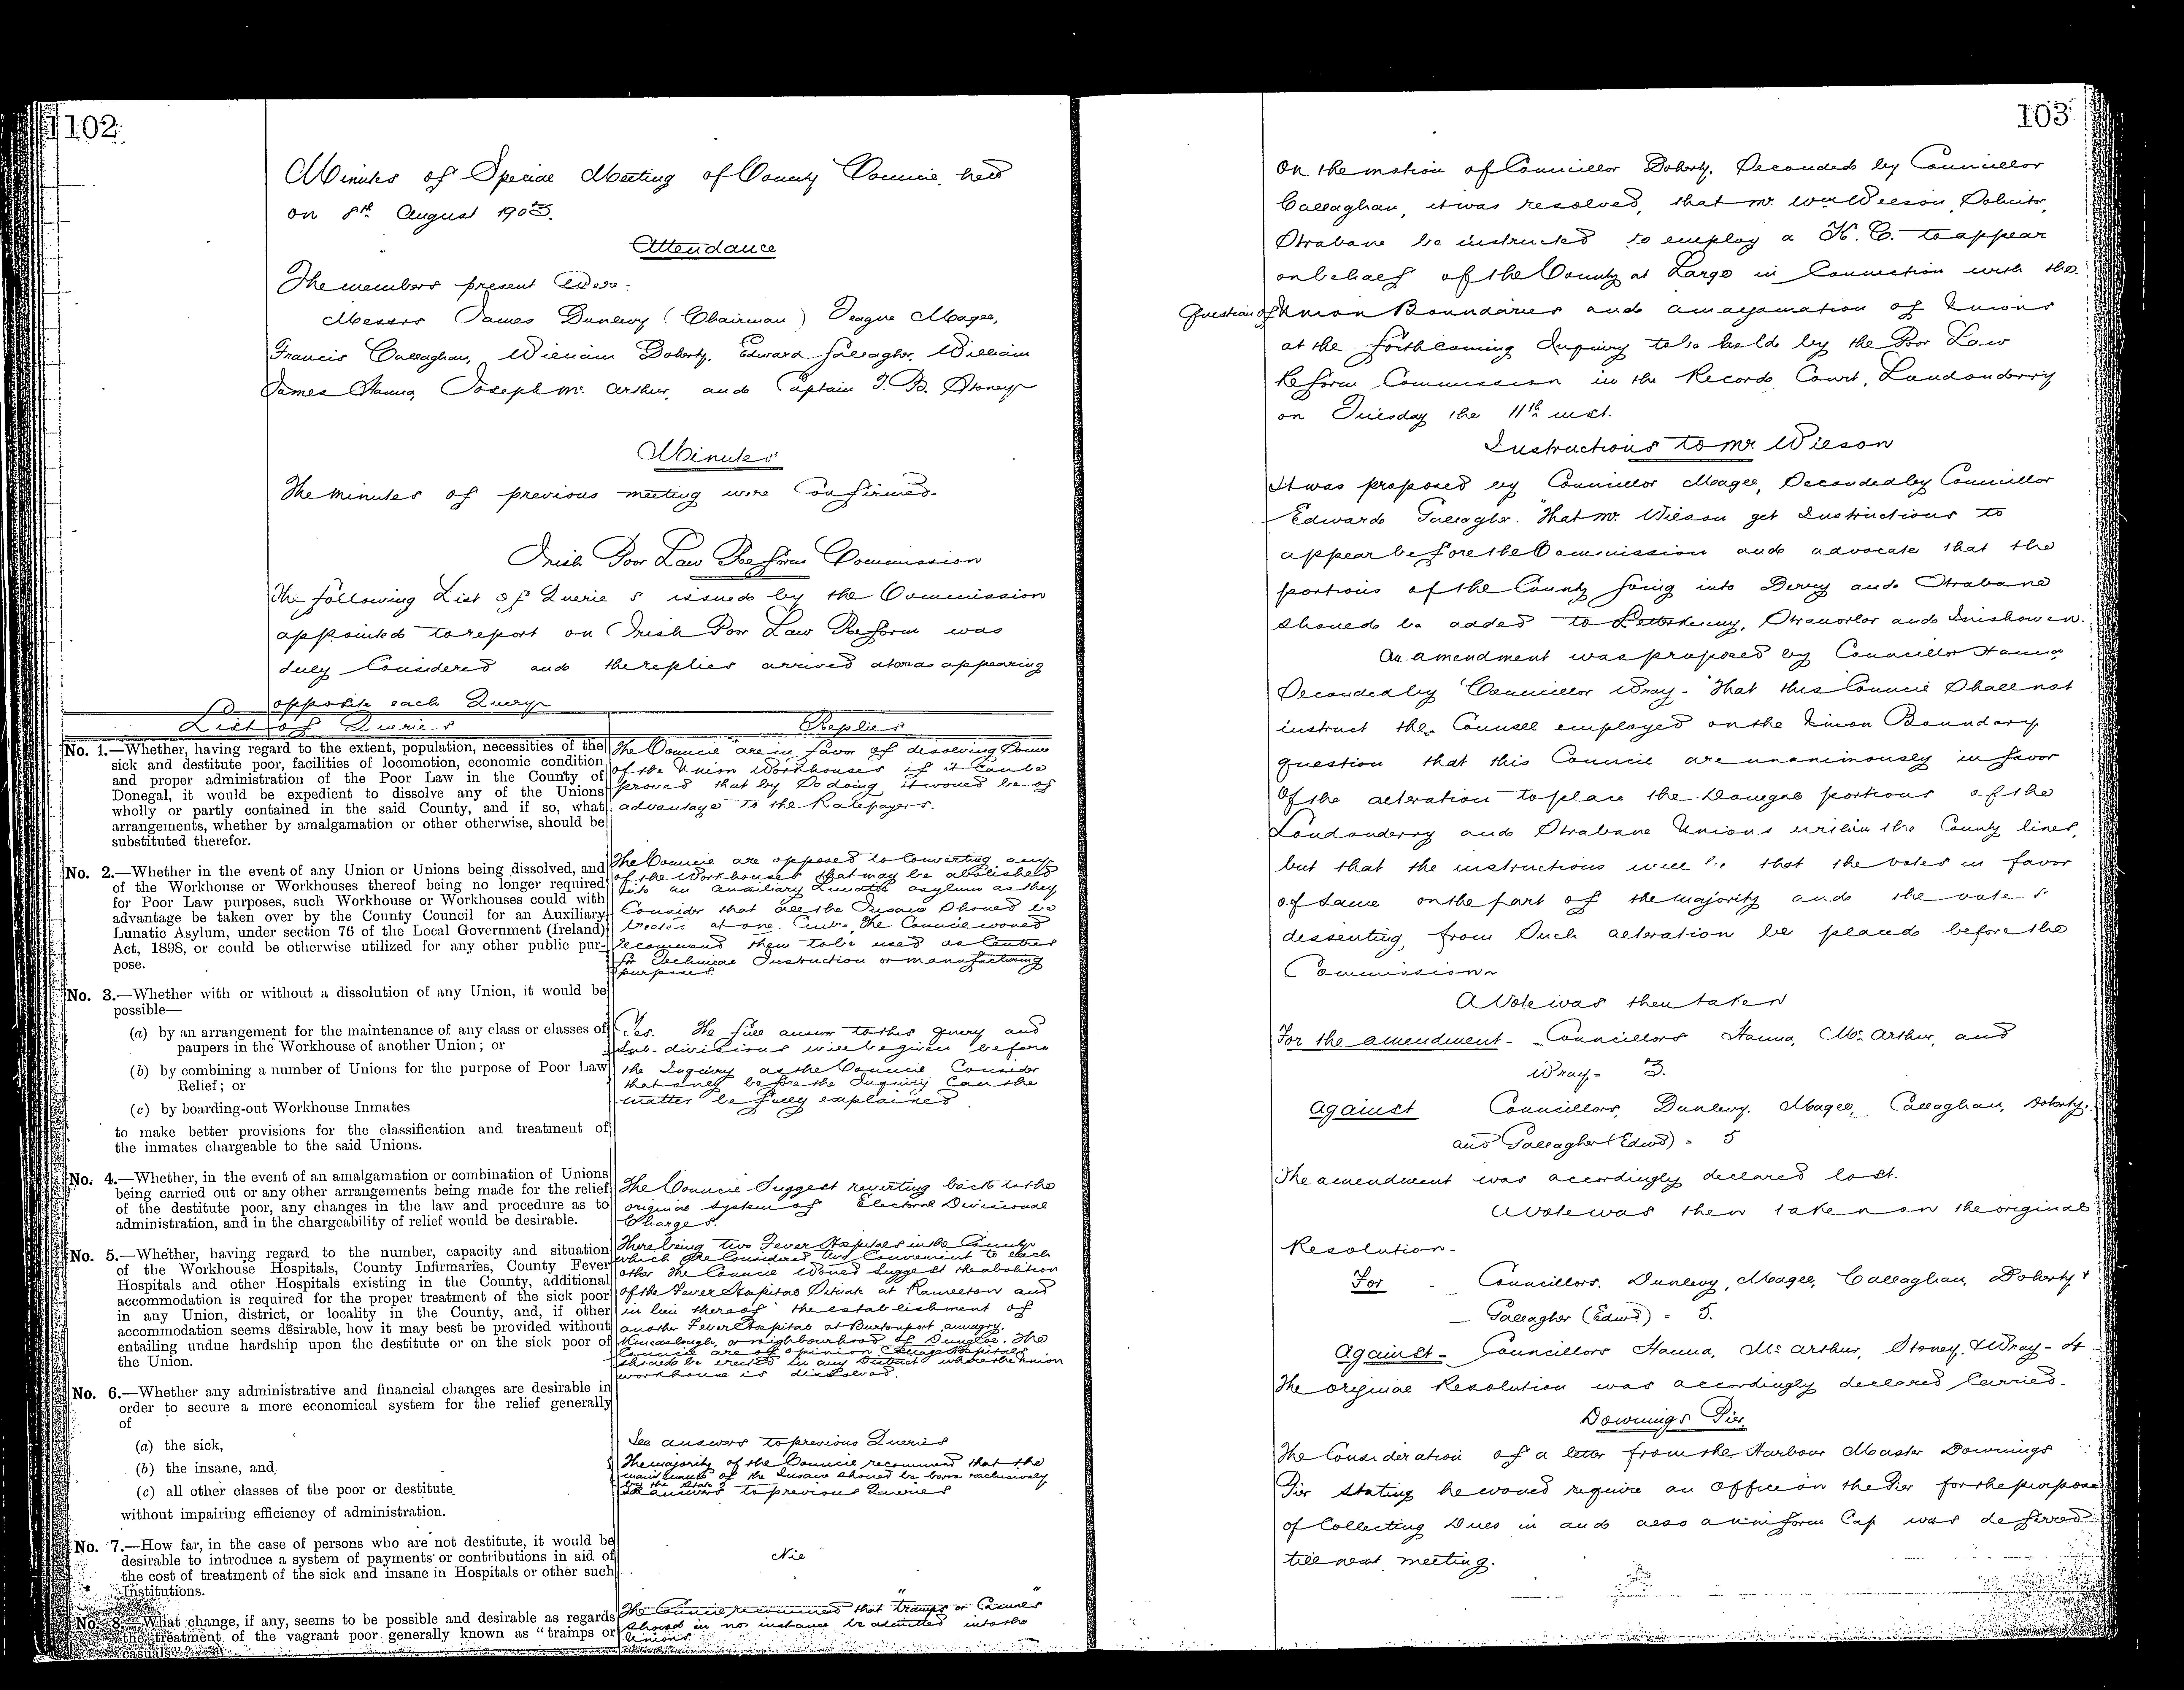 102
Minutes of Special Meeting of County Council, held
on 8th August 1903.
Attendance
The members present were:
Messrs James Dunlevy (Chairman) Teague Magee,
Francis Callaghan, William Doherty, Edward Gallagher, William
James Hanna, Joseph Mc Arthur, and Captain T. B. Stoney
Minutes
The minutes of previous meeting were Confirmed.
Irish Poor Law Reform Commission
The following List of Querie s issued by the Commission
appointed to report on Irish Poor Law Reform was
duly Considered and the replies arrived at was appearing
opposite each Query
List of Queries
Replies
No. 1.—Whether, having regard to the extent, population, necessities of the
sick and destitute poor, facilities of locomotion, economic condition
and proper administration of the Poor Law in the County of
Donegal, it would be expedient to dissolve any of the Unions
wholly or partly contained in the said County, and if so, what
arrangements, whether by amalgamation or other otherwise, should be
substituted therefor.
The Council are in favor of dissolving Some
of the Union Workhouses if it Can be
proved that by So doing it would be of
advantage to the Ratepayers.
No. 2.—Whether in the event of any Union or Unions being dissolved, and
of the Workhouse or Workhouses thereof being no longer required
for Poor Law purposes, such Workhouse or Workhouses could with
advantage be taken over by the County Council for an Auxiliary
Lunatic Asylum, under section 76 of the Local Government (Ireland)
Act, 1898, or could be otherwise utilized for any other public pur-
pose.
The Council are opposed to Converting any
of the Workhouses that may be abolished
into an auxiliary Lunatic asylum as they
Consider that all the Insane Should be
treated at one Centre, The Council would
recommend them to be used as Centres
for Technical Instruction or manufacturing
purposes.
No. 3.—Whether with or without a dissolution of any Union, it would be
possible—
(a) by an arrangement for the maintenance of any class or classes of
paupers in the Workhouse of another Union; or
(b) by combining a number of Unions for the purpose of Poor Law
Relief; or
(c) by boarding-out Workhouse Inmates
to make better provisions for the classification and treatment of
the inmates chargeable to the said Unions.
Yes. The full answer to this query and
Sub-divisions will be given before
the Inquiry as the Council Consider
that only before the Inquiry Can the
matter be fully explained.
No. 4.—Whether, in the event of an amalgamation or combination of Unions
being carried out or any other arrangements being made for the relief
of the destitute poor, any changes in the law and procedure as to
administration, and in the chargeability of relief would be desirable.
The Council Suggest reverting back to the
original System of Electoral Divisional
Charges.
No. 5.—Whether, having regard to the number, capacity and situation
of the Workhouse Hospitals, County Infirmaries, County Fever
Hospitals and other Hospitals existing in the County, additional
accommodation is required for the proper treatment of the sick poor
in any Union, district, or locality in the County, and, if other
accommodation seems desirable, how it may best be provided without
entailing undue hardship upon the destitute or on the sick poor of
the Union.
There being two Fever Hospitals in the County
which are Considered two Convenient to each
other The Council would Suggest the abolition
of the Fever Hospital Situate at Ramelton and
in lieu thereof the establishment of
another Fever Hospital at Burtonport annagry,
Kincaslough, or neighbourhood of Dungloe. The
Council are of opinion Cottage Hospitals
should be erected in any District where the Union
workhouse is dissolved.
No. 6.—Whether any administrative and financial changes are desirable in
order to secure a more economical system for the relief generally
of
(a) the sick,
(b) the insane, and
(c) all other classes of the poor or destitute
without impairing efficiency of administration.
See answers to previous Queries
The majority of the Council recommend that the
maintenance of the Insane should be borne exclusively
by the State
See answers to previous Queries
No. 7.—How far, in the case of persons who are not destitute, it would be
desirable to introduce a system of payments or contributions in aid of
the cost of treatment of the sick and insane in Hospitals or other such
Institutions.
Nil
No. 8.—What change, if any, seems to be possible and desirable as regards
the treatment of the vagrant poor generally known as "tramps or
casuals"?
The Council recommend that "tramps or Casuals"
should in no instance be admitted into the
Unions
103
On the motion of Councillor Doherty, Seconded by Councillor
Callaghan, it was resolved, that Mr. Wm Wilson, Solicitor,
Strabane be instructed to employ a K. C. to appear
on behalf of the County at Large in Connection with the
Question of Union Boundaries and amalgamation of Unions
at the forthcoming Inquiry to be held by the Poor Law
Reform Commission in the Record Court, Londonderry
on Tuesday the 11th inst.
Instructions to Mr. Wilson
It was proposed by Councillor Magee, Seconded by Councillor
Edward Gallagher. "That Mr. Wilson get Instructions to
appear before the Commission and advocate that the
portions of the County going into Derry and Strabane
should be added to Letterkenny, Stranorlar and Inishowen.
An amendment was proposed by Councillor Hanna
Seconded by Councillor Wray - "That this Council Shall not
instruct the Counsel employed on the Union Boundary
question that this Council are unanimously in favor
of the alteration to place the Donegal portions of the
Londonderry and Strabane Unions within the County lines,
but that the instructions will be that the votes in favor
of Same on the part of the majority and the votes
dissenting from Such alteration be placed before the
Commission
A Vote was then taken
For the amendment - Councillors Hanna, Mc Arthur, and
Wray = 3.
Against Councillors, Dunlevy, Magee, Callaghan, Doherty,
and Gallagher (Edwd) = 5
The amendment was accordingly declared lost.
A vote was then taken on the original
Resolution -
For - Councillors. Dunlevy, Magee, Callaghan, Doherty &
Gallagher (Edwd) = 5.
Against - Councillors Hanna, Mc Arthur, Stoney, & Wray - 4
The original Resolution was accordingly declared Carried.
Downings Pier.
The Consideration of a letter from the Harbour Master Downings
Pier Stating he would require an Office on the Pier for the purpose
of Collecting Dues in and also a uniform Cap was deferred
till next meeting.